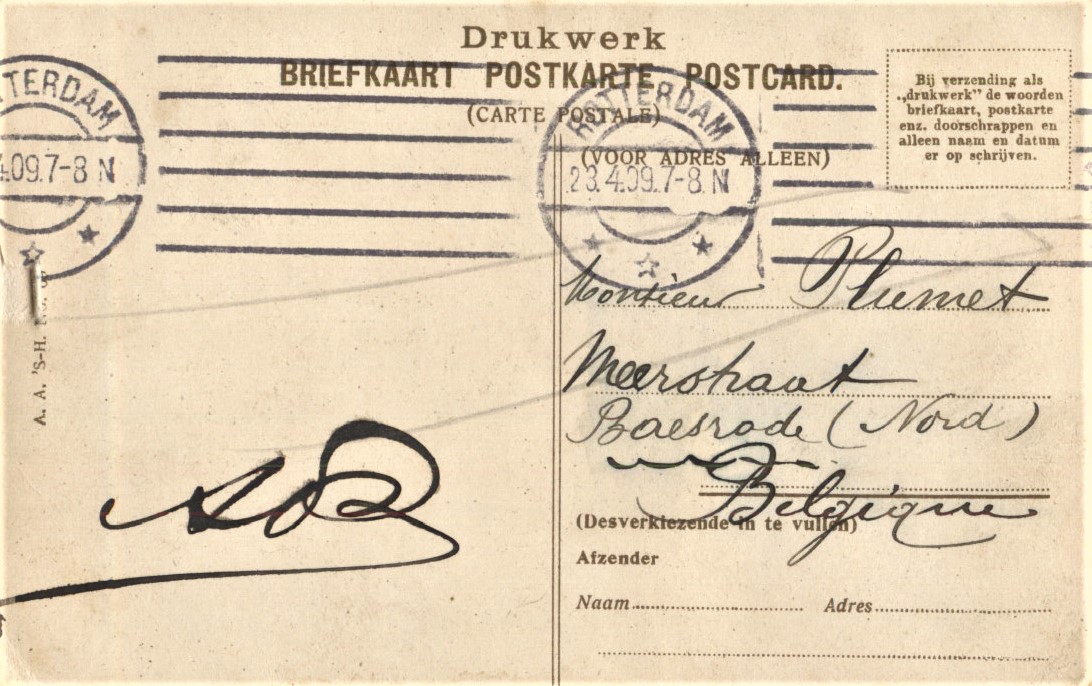 Drukwerk
BRIEFKAART POSTKARTE POSTCARD.
(CARTE POSTALE)
(VOOR ADRES ALLEEN)
Bij verzending als
„drukwerk" de woorden
briefkaart, postkarte
enz. doorschrappen en
alleen naam en datum
er op schrijven.
TTERDAM
4.09.7-8 N
ROTTERDAM
23.4.09.7-8.N
Monsieur Plumet
Meerstraat
Baesrode (Nord)
Belgique
(Desverkiezende in te vullen)
Afzender
Naam
Adres
A. A. 'S-H.